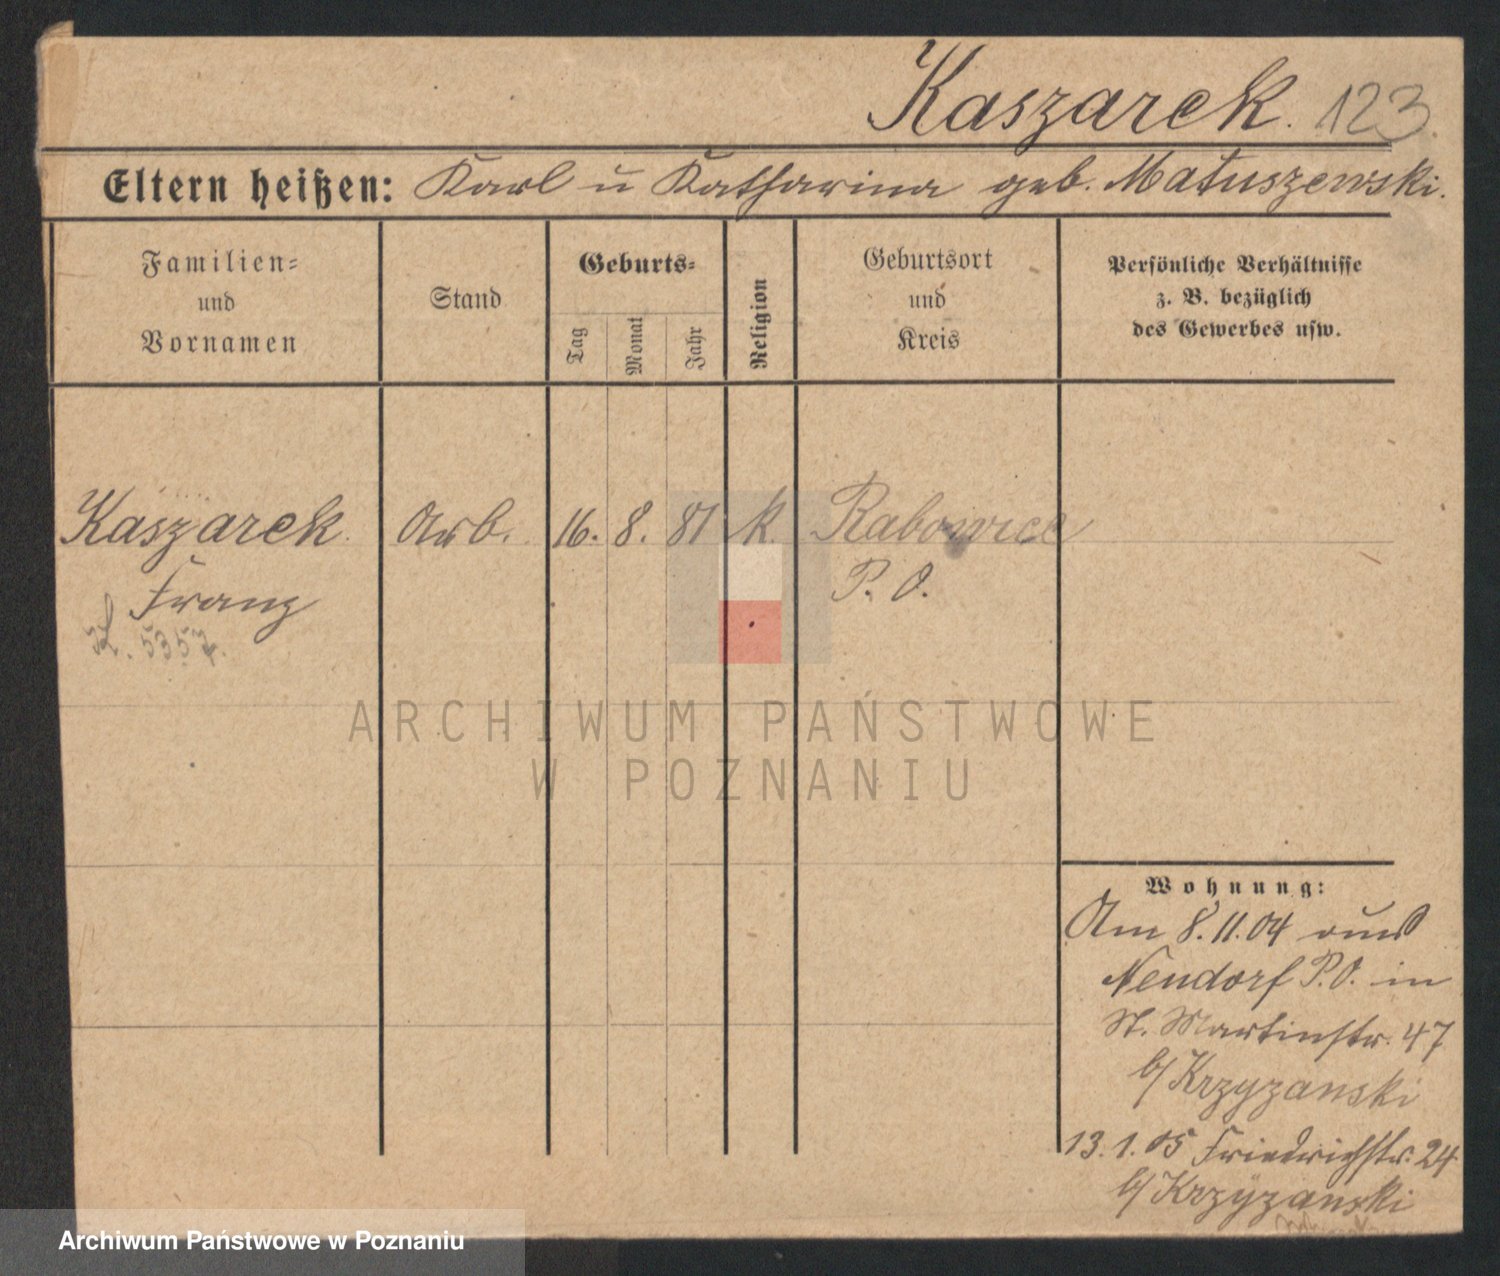 Kaszarek. 123.
Eltern heißen: Karl u Katharina geb. Matuszewski.
Familien-
und
Vornamen
Stand
Geburts-
Tag
Monat
Jahr
Religion
Geburtsort
und
Kreis
Persönliche Verhältnisse
z. B. bezüglich
des Gewerbes usw.
Kaszarek Arb. 16. 8. 81 k. Rabowice
Franz P. O.
5357.
ARCHIWUM PAŃSTWOWE
W POZNANIU
Wohnung:
Am 8.11.04 aus
Neudorf P.O. in
St. Martinstr. 47
b/ Krzyzanski
13.1.05 Friedrichstr. 24
b/ Krzyzanski
Archiwum Państwowe w Poznaniu